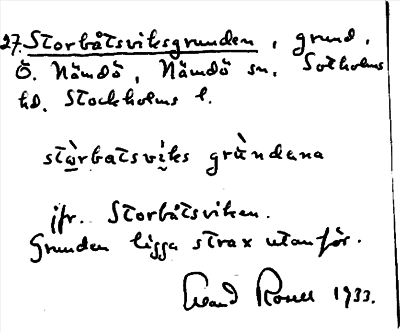 27. Storbåtsviksgrunden, grund,
Ö. Nämdö, Nämdö sn. Sotholms
hd. Stockholms l.
stòrbatsviks gründena
jfr. Storbåtsviken.
Grunden ligga strax utanför.
1933.